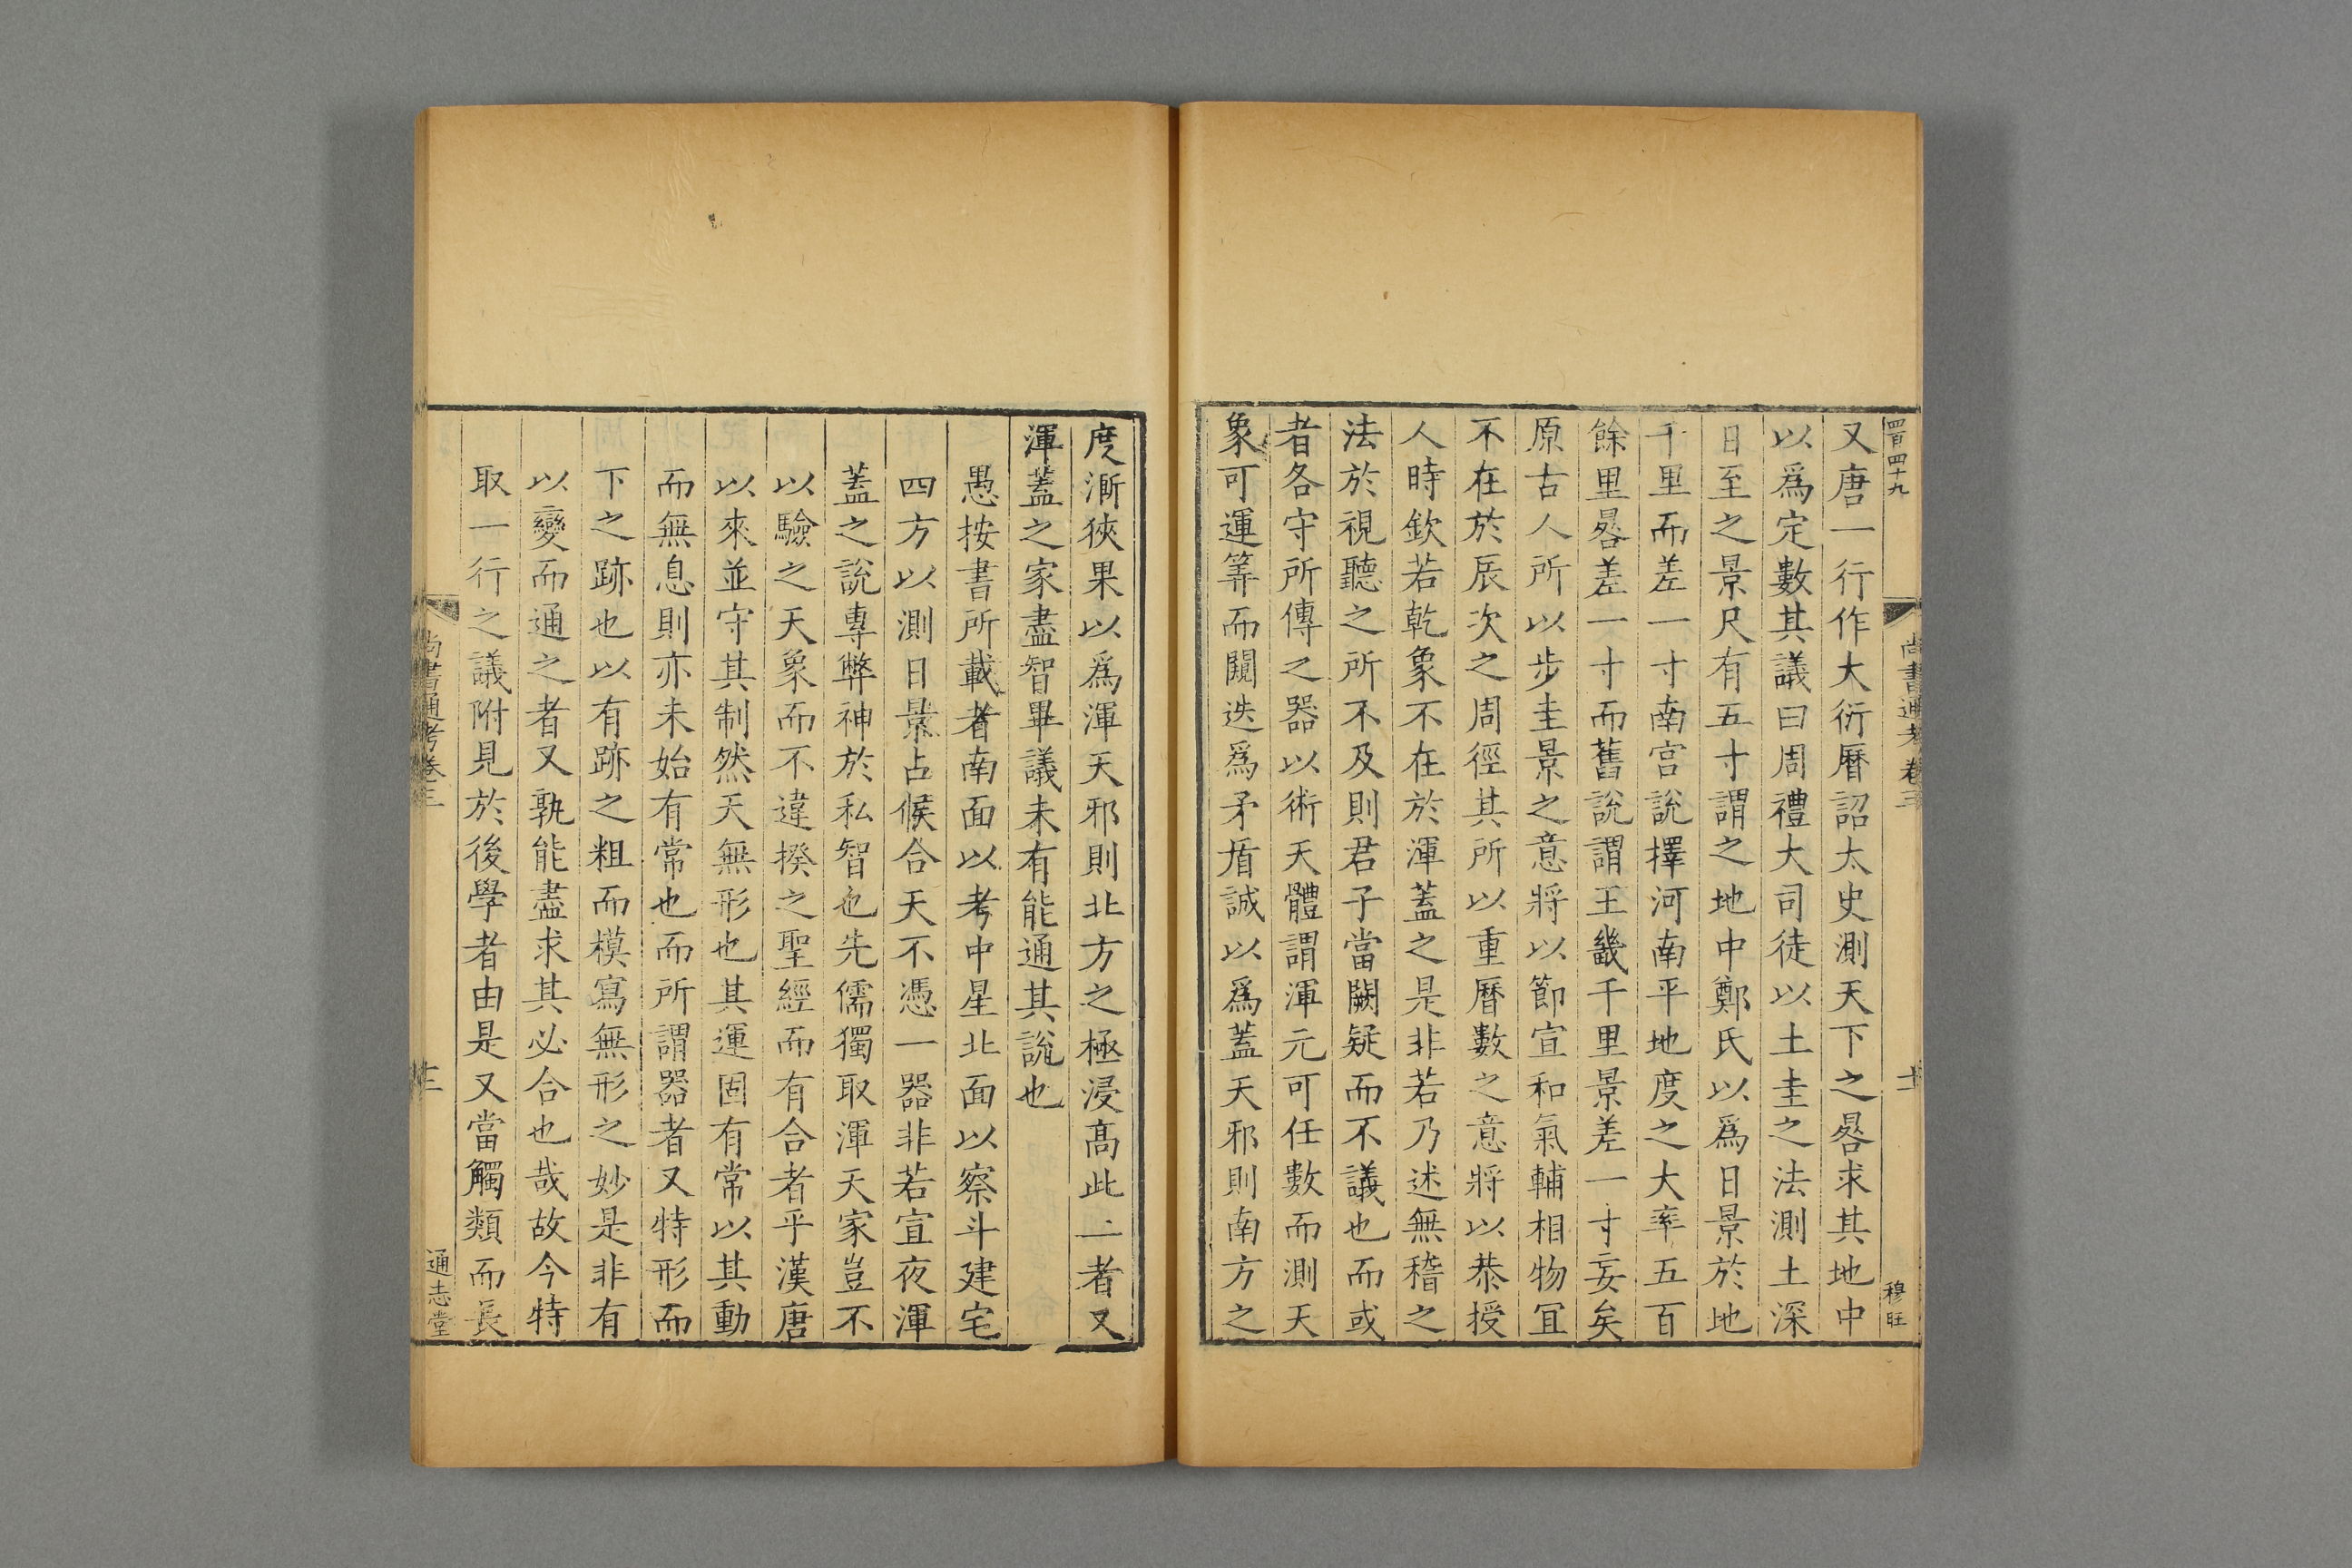 四百四十九
尚書通考卷三
穆旺
又唐一行作大衍曆詔太史測天下之晷求其地中
以爲定數其議曰周禮大司徒以土圭之法測土深
日至之景尺有五寸謂之地中鄭氏以爲日景於地
千里而差一寸南宫說擇河南平地度之大率五百
餘里晷差一寸而舊說謂王畿千里景差一寸妄矣
原古人所以步圭景之意將以節宣和氣輔相物冝
不在於辰次之周徑其所以重曆數之意將以恭授
人時欽若乾象不在於渾蓋之是非若乃述無稽之
法於視聽之所不及則君子當闕疑而不議也而或
者各守所傳之器以術天體謂渾元可任數而測天
象可運筭而闚迭爲矛盾誠以爲蓋天邪則南方之
度漸狹果以爲渾天邪則北方之極浸髙此二者又
渾蓋之家盡智畢議未有能通其說也
愚按書所載者南面以考中星北面以察斗建宅
四方以測日景占候合天不憑一器非若宣夜渾
蓋之說專弊神於私智也先儒獨取渾天家豈不
以驗之天象而不違揆之聖經而有合者乎漢唐
以來並守其制然天無形也其運固有常以其動
而無息則亦未始有常也而所謂器者又特形而
下之跡也以有跡之粗而模寫無形之妙是非有
以變而通之者又孰能盡求其必合也哉故今特
取一行之議附見於後學者由是又當觸類而長
尚書通考卷三
通志堂